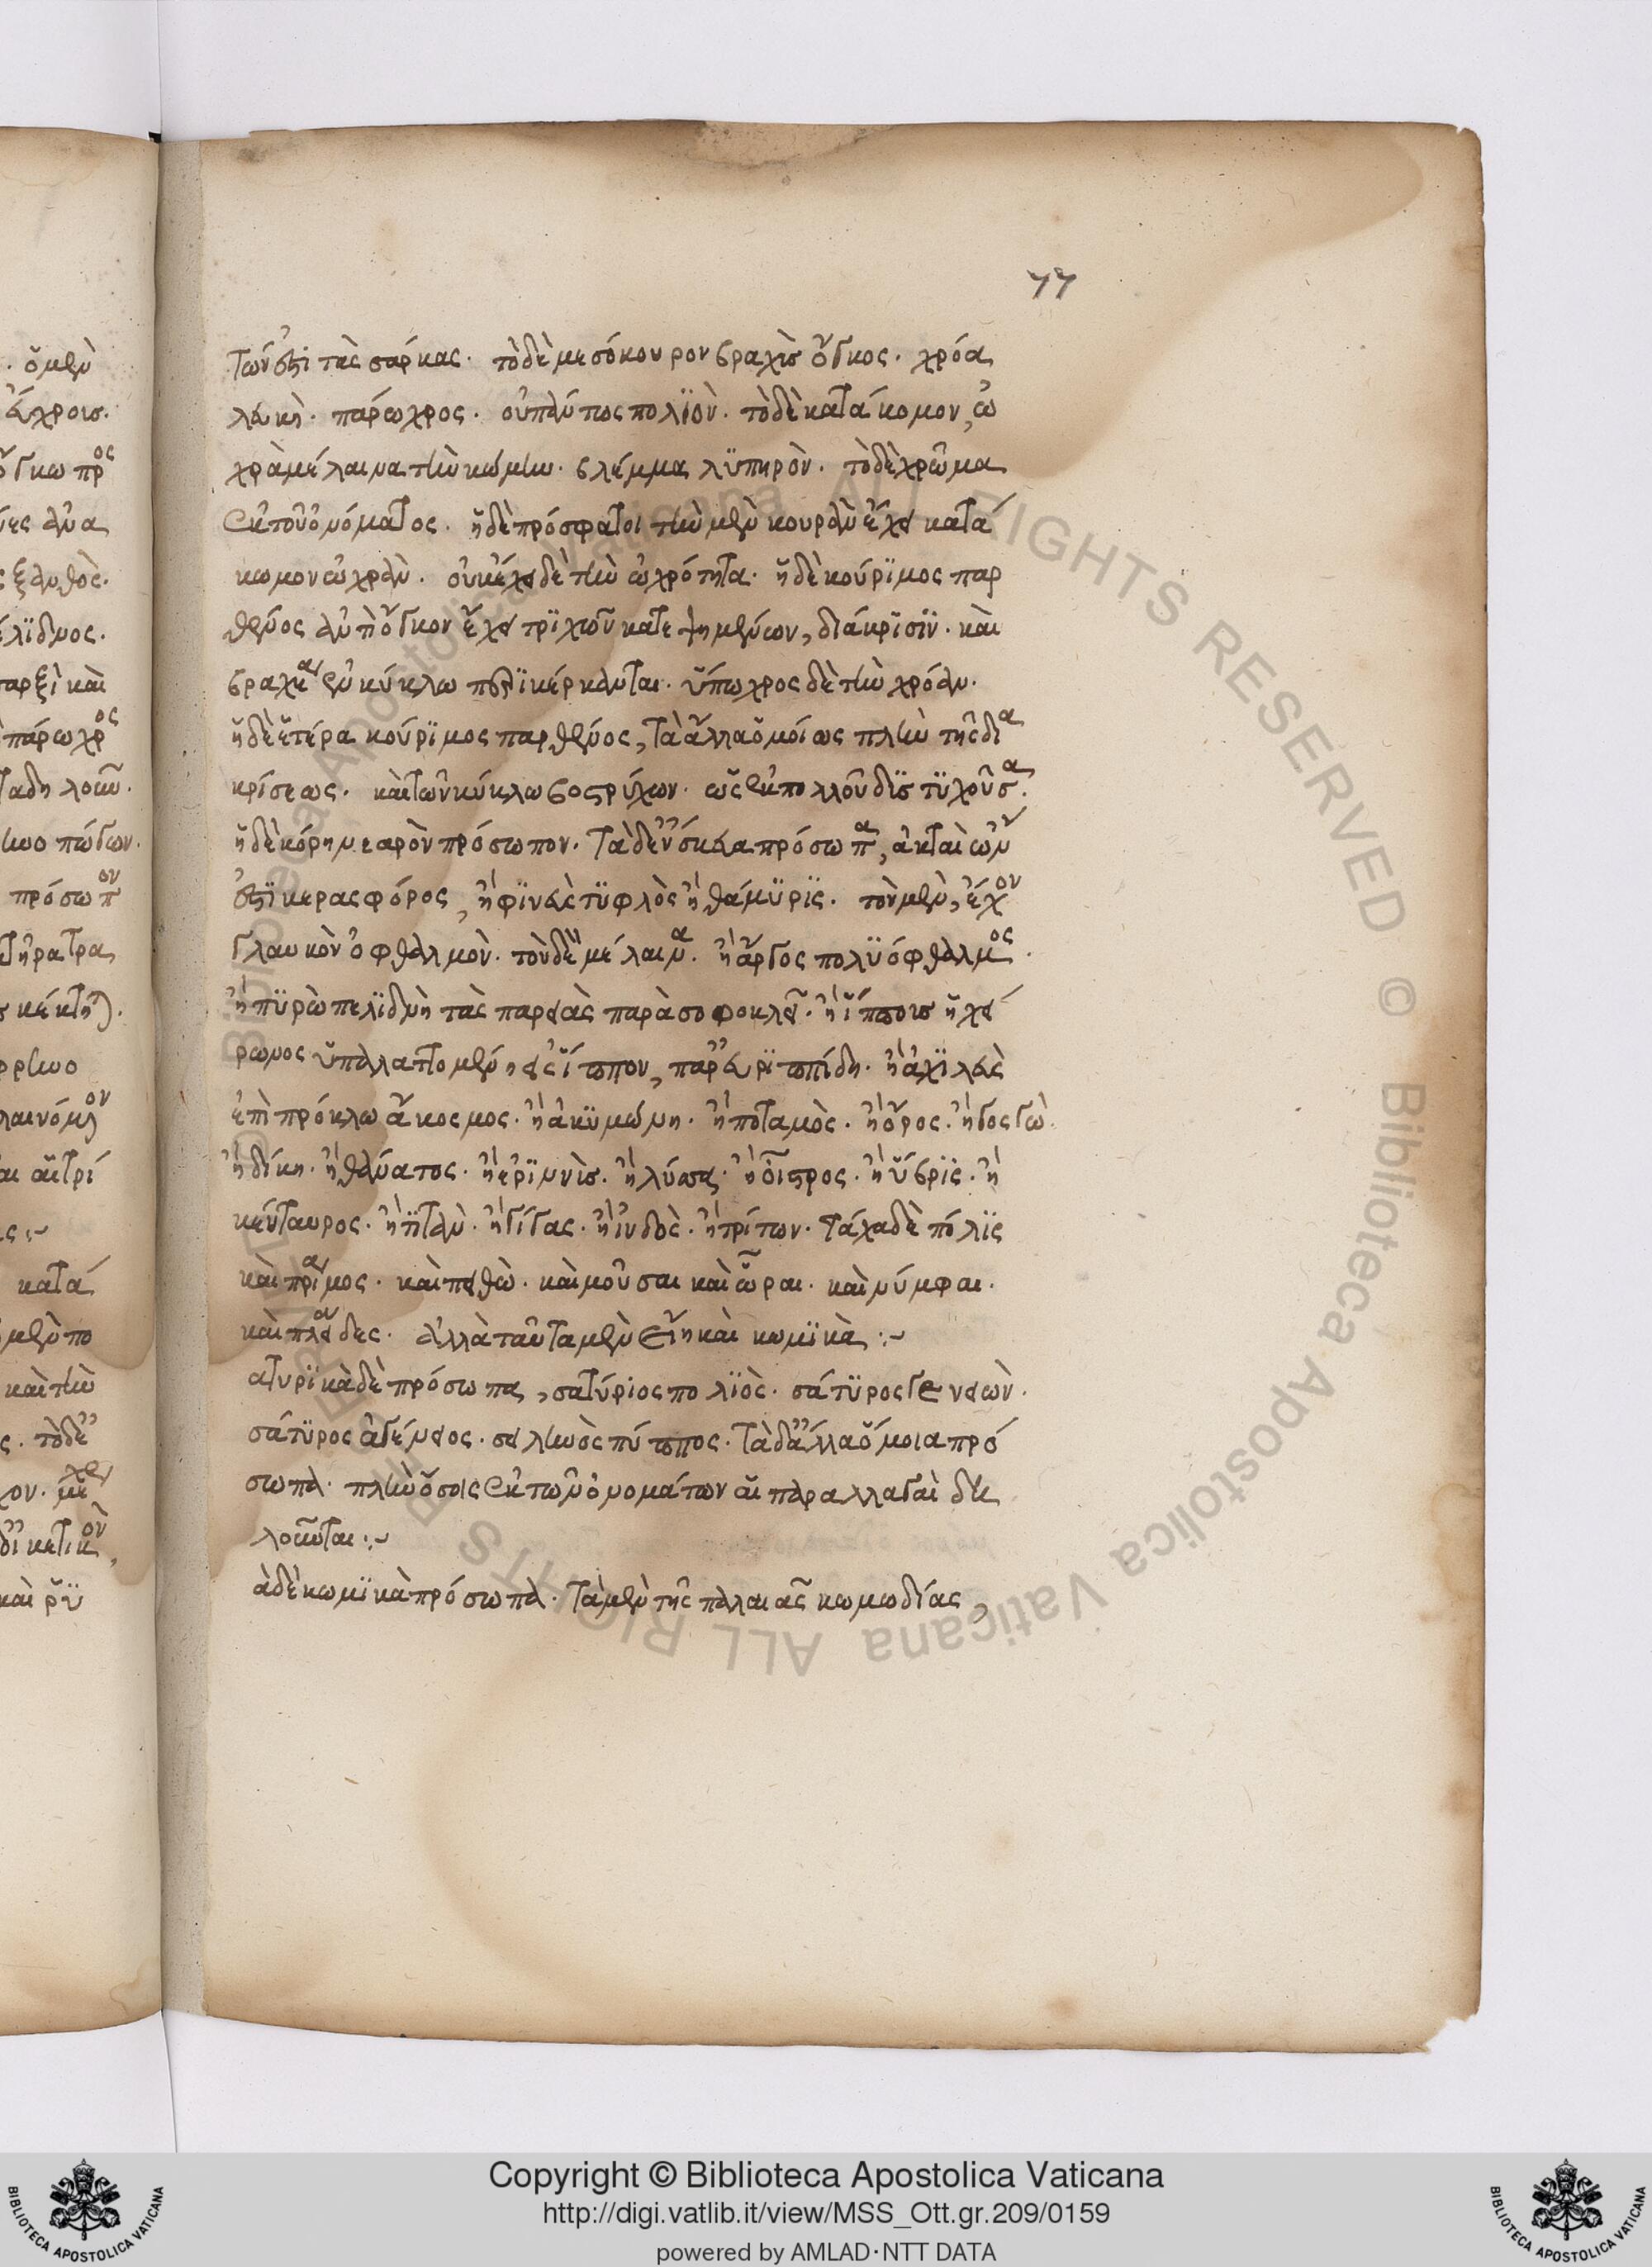 77
τῶν ἐπὶ τὰς σάρκας. τὸ δὲ μεσόκουρον βραχὺς ὄγκος. χρόα
λευκὴ. πάρωχρος. οὐ πάντως πολϊὸν. τὸ δὲ κατάκομον, ὠ
χρὰ μέλαινα τὴν κώμην. βλέμμα λϋπηρὸν. τὸ δὲ χρῶμα
ἐκ τοῦ ὀνόματος. ἡ δὲ πρόσφατοι τὴν μὲν κουρὰν ἔχει κατά
κωμον ὠχρὰν. οὐκ ἔχει δὲ τὴν ὠχρότητα. ἡ δὲ κούρϊμος παρ
θένος ἀντὶ ὄγκου ἔχει τρϊχῶν κατεψημένων, διάκρϊσϊν. καὶ
βραχέα ἐν κύκλω περϊκέρκανται. ὕπωχρος δὲ τὴν χρόαν.
ἡ δὲ ἑτέρα κούρϊμος παρθένος, τὰ ἄλλα ὁμοίως πλὴν τῆς δια
κρίσεως. καὶ τῶν κύκλω βοστρύχων. ὡς ἐκ πολλοῦ δϊστϋχοῦσα.
ἡ δὲ κόρη νεαρὸν πρόσωπον. τὰ δ' ἔνσκευα πρόσωπα, ἀκταίων
ἐστϊ κερασφόρος, ἢ φϊνεὺς τϋφλὸς ἢ θάμϋρϊς. τὸν μὲν, ἔχον
γλαυκὸν ὀφθαλμὸν. τὸν δὲ μέλαινα. ἢ ἄργος πολϋόφθαλμος.
ἢ τϋρὼ πελϊδνὴ τὰς παρειὰς παρὰ σοφοκλεῖ. ἢ ἵπποις ἡ χεί
ρωνος ὑπαλαττομένη εἰς ἵππον, παρ' εὐρϊππίδη. ἢ ἀχϊλεὺς
ἐπὶ πρόκλω ἄκοσμος. ἢ ἀκϋμώνη. ἢ ποταμὸς. ἢ ὄρος. ἢ γοργὼ.
ἢ δίκη. ἢ θάνατος. ἢ ἐρϊννὺς. ἢ λύσσα. ἢ οἶστρος. ἢ ὕβρϊς. ἢ
κένταυρος. ἢ τϊτὰν. ἢ γίγας. ἢ ἰνδὸς. ἢ τρίτων. τάχα δὲ πόλϊς
καὶ πρίαμος. καὶ πειθὼ. καὶ μοῦσαι καὶ ὧραι. καὶ νύμφαι.
καὶ πλειάδες. ἀλλὰ ταῦτα μὲν εἴη καὶ κωμϊκὰ :~
ατυρϊκὰ δὲ πρόσωπα, σατύριος πολϊὸς. σάτϋρος γενειῶν.
σάτϋρος ἀγένειος. σειληνὸς πύππος. τὰ δ' ἄλλα ὅμοια πρό
σωπα. πλὴν ὅσοις ἐκ τῶν ὀνομάτων αἱ παραλλαγαὶ δη
λοῦνται :~
ὰ δὲ κωμϊκὰ πρόσωπα. τὰ μὲν τῆς παλαιᾶς κωμωδίας,
Copyright © Biblioteca Apostolica Vaticana
http://digi.vatlib.it/view/MSS_Ott.gr.209/0159
powered by AMLAD·NTT DATA